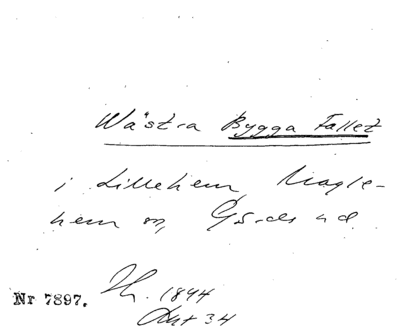 Wästra Bygga Fallet
i Lillehem, Magle-
hem sn, Gärds hd
Nr 7897.
1844
34